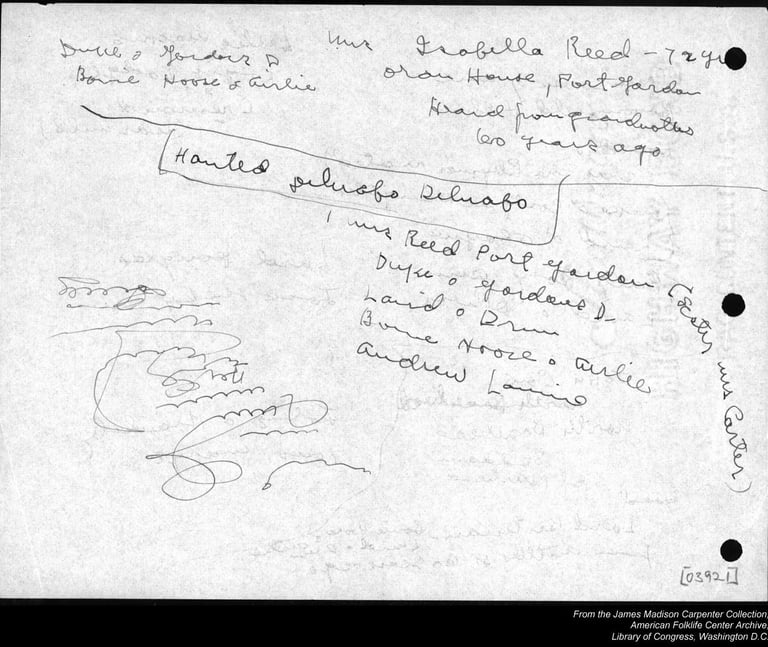 Duke o Gordons D
Bonie Hoose o Airlie
Mrs Isabella Reed - 72 yrs
Oran House, Port Gordon
Heard from grandmother
60 years ago
Hanted
Mrs Reed Port Gordon (Sister Mrs Carter)
Duke o Gordons D
Laird o Drum
Bonie Hoose o Airlie
Andrew Lamie
[03921]
From the James Madison Carpenter Collection,
American Folklife Center Archive,
Library of Congress, Washington D.C.